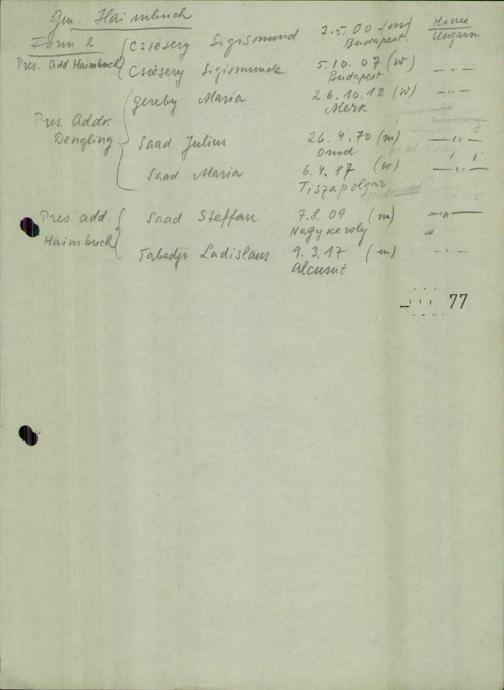 Gm Haimbuch
Home
Form 2
Csicsery Sigismund 7.5.00 (m) Ungarn
Budapest
Pres. Add Haimbuch
Csicsery Sigismunde 5.10.07 (w) — " —
Budapest
Gereby Maria 26.10.12 (w) — " —
Merk
Pres. Addr.
Dengling
Saad Julius 26.4.70 (m) — " —
Onod
Saad Maria 6.4.87 (w) — " —
Tiszapolgar
Pres. add. Saad Steffan 7.8.09 (m) — " —
Haimbuch Nagykeroly "
Tabadji Ladislaus 9.3.17 (m) — " —
Alcsut
77